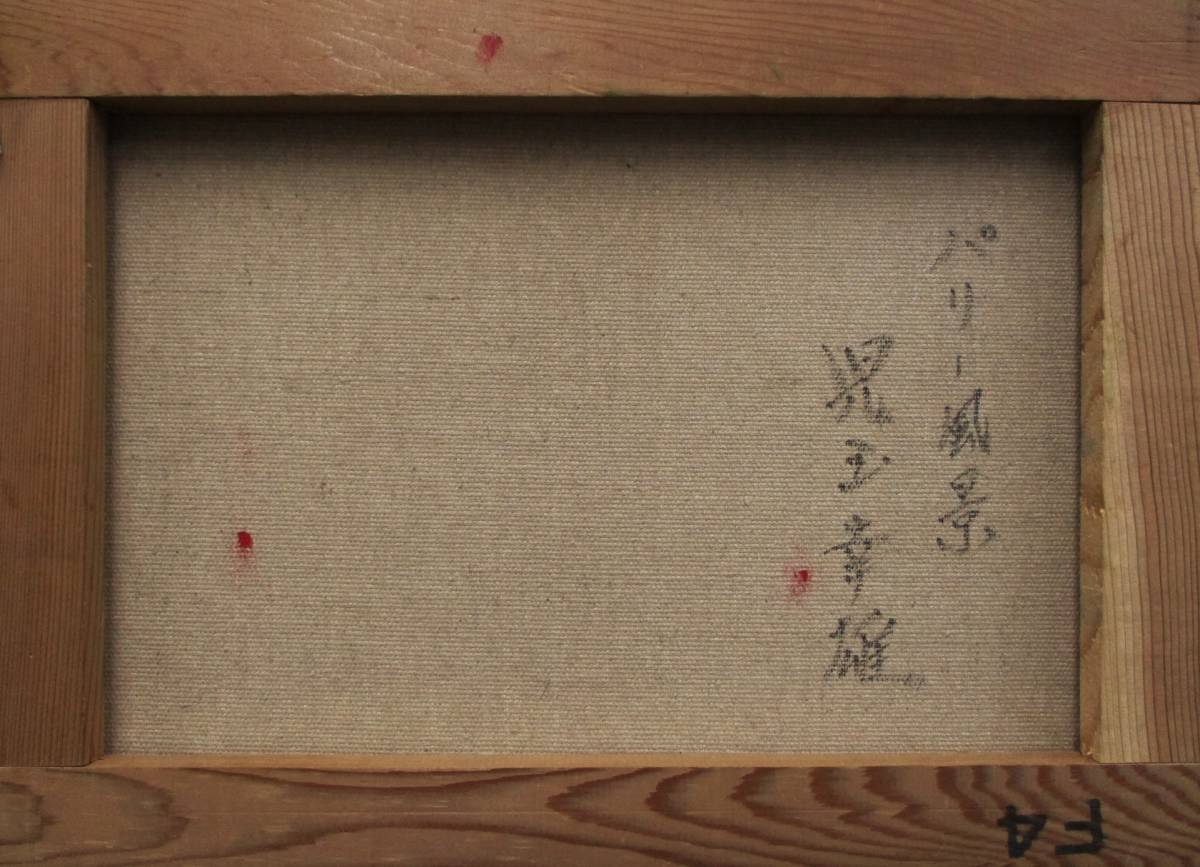 パリー風景
児玉幸雄
F4